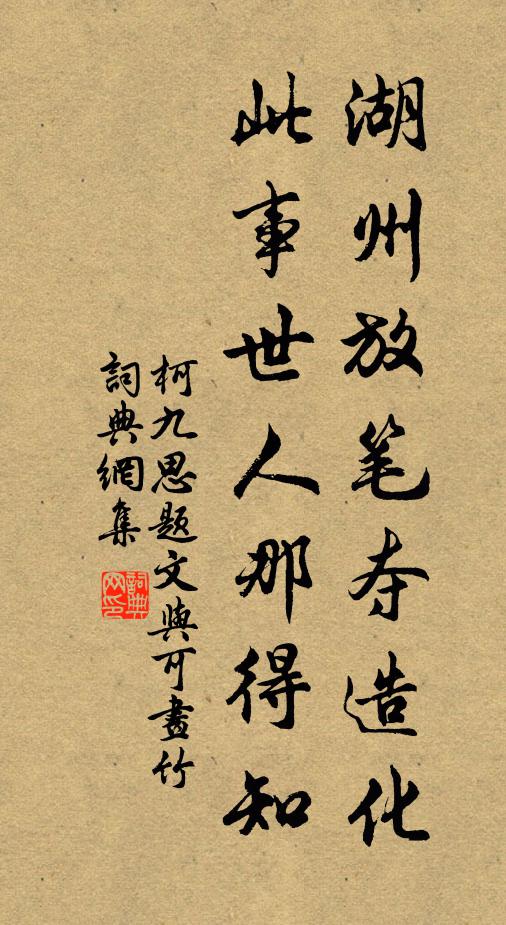 湖州放笔夺造化
此事世人那得知
柯九思题文與可畫竹
詞典網集
詞典
网印